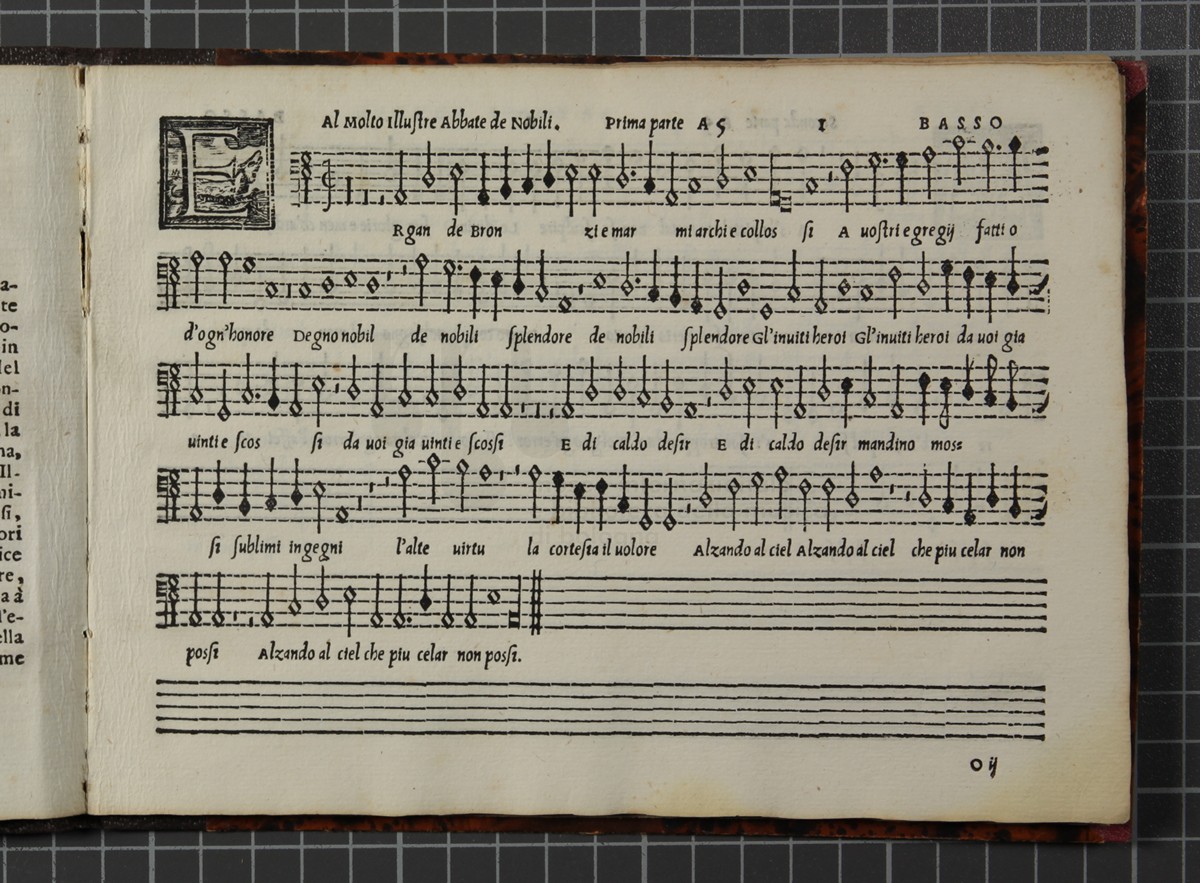 Al Molto Illuſtre Abbate de Nobili. Prima parte A 5 1 BASSO
ERgan de Bron zi e mar mi archi e collos ſi A uoſtri egregij fatti o
d'ogn'honore Degno nobil de nobili ſplendore de nobili ſplendore Gl'inuiti heroi Gl'inuiti heroi da uoi gia
uinti e ſcos ſi da uoi gia uinti e ſcoſſi E di caldo deſir E di caldo deſir mandino mos=
ſi ſublimi ingegni l'alte uirtu la corteſia il uolore Alzando al ciel Alzando al ciel che piu celar non
poſſi Alzando al ciel che piu celar non poſſi.
O ij
a-
te
o-
in
del
on-
di
la
na,
Il-
ni-
ſi,
ori
ice
re,
a à
l'e-
ella
me